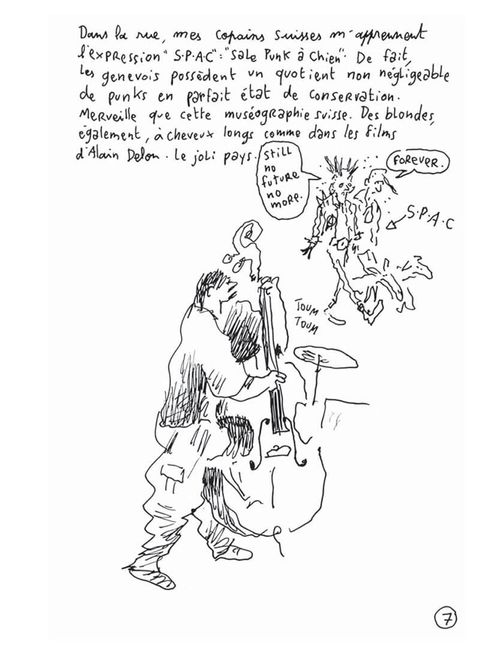 Dans la rue, mes copains suisses m'apprennent
l'expression "S.P.A.C": "Sale Punk à Chien". De fait,
les genevois possèdent un quotient non négligeable
de punks en parfait état de conservation.
Merveille que cette muséographie suisse. Des blondes,
également, à cheveux longs comme dans les films
d'Alain Delon. Le joli pays.
Still
no
future
no
more.
Forever.
S.P.A.C
TOUM
TOUM
7